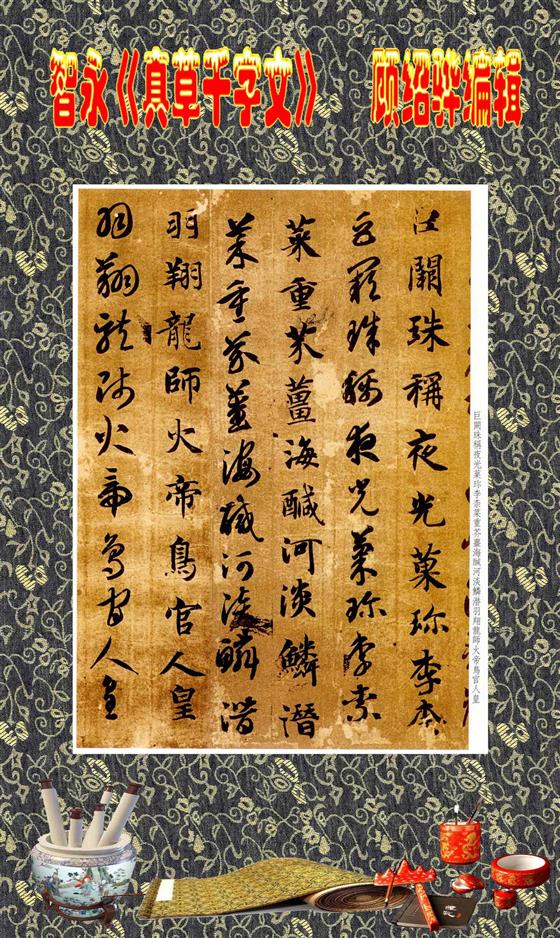 智永《真草千字文》 顾绍骅编辑
巨闕珠稱夜光菓珎李柰
巨闕珠稱夜光菓珎李柰
菜重芥薑海醎河淡鱗潛
菜重芥薑海醎河淡鱗潛
羽翔龍師火帝鳥官人皇
羽翔龍師火帝鳥官人皇
巨闕珠稱夜光菓珎李柰菜重芥薑海醎河淡鱗潛羽翔龍師火帝鳥官人皇